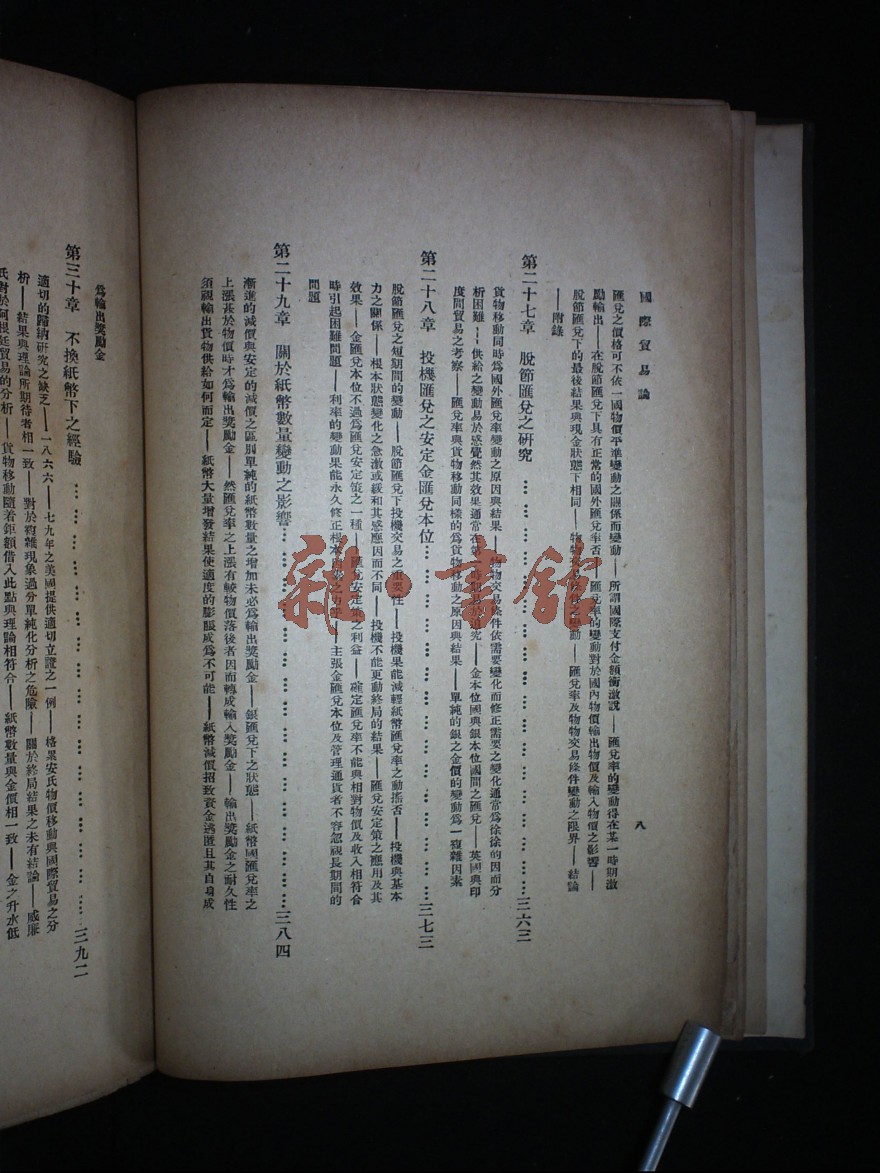 國際貿易論
八
匯兌之價格可不依一國物價平準變動之關係而變動——所謂國際支付金額衝激說——匯兌率的變動得在某一時期激
勵輸出——在脫節匯兌下具有正常的國外匯兌率否——匯兌率的變動對於國內物價輸出物價及輸入物價之影響——
脫節匯兌下的最後結果與現金狀態下相同——物物交易條件之變動——匯兌率及物物交易條件變動之限界——結論
——附錄
第二十七章 脫節匯兌之研究…………三六三
貨物移動同時為國外匯兌率變動之原因與結果——物物交易條件依需要變化而修正需要之變化通常為徐徐的因而分
析困難——供給之變動易於感覺然其效果通常在第一時期易於追究——金本位國與銀本位國間之匯兌——英國與印
度間貿易之考察——匯兌率與貨物移動同樣的為貨物移動之原因與結果——單純的銀之金價的變動為一複雜因素
第二十八章 投機匯兌之安定金匯兌本位…………三七三
脫節匯兌之短期間的變動——脫節匯兌下投機交易之重要性——投機果能減輕紙幣匯兌率之動搖否——投機與基本
力之關係——根本狀態變化之急激或緩和其感應因而不同——投機不能更動終局的結果——匯兌安定策之應用及其
效果——金匯兌本位不過為匯兌安定策之一種——匯兌安定策之利益——確定匯兌率不能與相對物價及收入相符合
時引起困難問題——利率的變動果能永久修正根本因素之力乎——主張金匯兌本位及管理通貨者不容忽視長期間的
問題
第二十九章 關於紙幣數量變動之影響…………三八四
漸進的減價與安定的減價之區別單純的紙幣數量之增加未必為輸出獎勵金——銀匯兌下之狀態——紙幣國匯兌率之
上漲甚於物價時才為輸出獎勵金——然匯兌率之上漲有較物價落後者因而轉成輸入獎勵金——輸出獎勵金之耐久性
須視輸出貨物供給如何而定——紙幣大量增發結果使適度的膨脹成為不可能——紙幣減價招致資金逃匿且其自身成
為輸出獎勵金
第三十章 不換紙幣下之經驗…………三九二
適切的歸納研究之缺乏——一八六六——七九年之美國提供適切立證之一例——格累安氏物價移動與國際貿易之分
析——結果與理論所期待者相一致——對於複雜現象過分單純化分析之危險——關於終局結果之未有結論——威廉
氏對於阿根廷貿易的分析——貨物移動隨着鉅額借入此點與理論相符合——紙幣數量與金價相一致——金之升水低
雜·書館